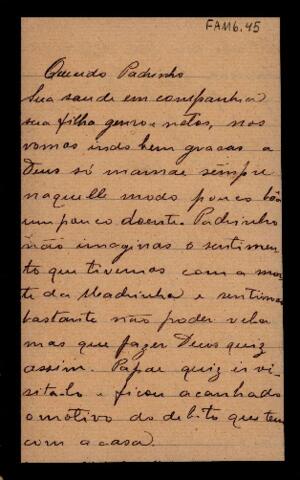 FAM6.45
Querido Padrinho
Sua saude em companhia de
sua filha genro e netos, nos
vomos indo bem graças a
Deus só mamae sempre
naquelle modo pouco bôa
um pouco doente. Padrinho
não imaginas o sentimen
to que tivemos com a mor
te da Madrinha e sentimos
bastante não poder vela
mas que fazer Deus quiz
assim. Papae quiz ir vi
sitalo e ficou acanhado
o motivo do debito que tem
com a casa.